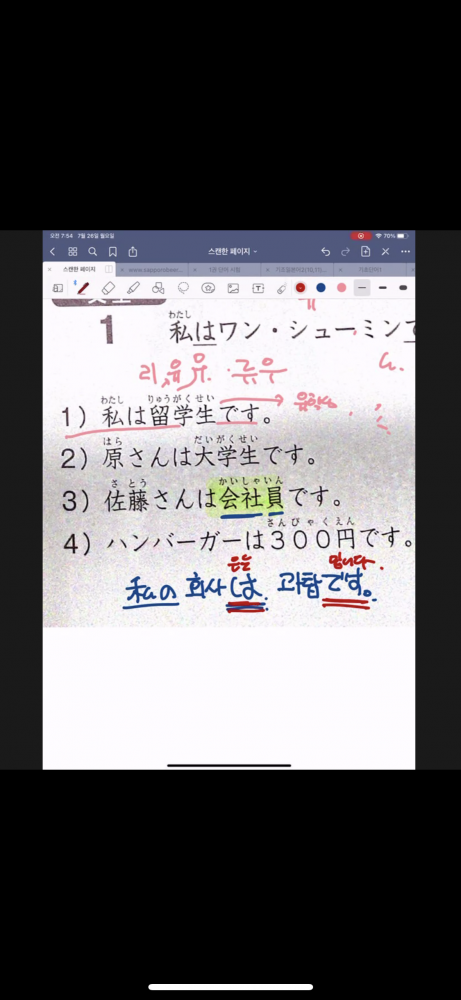 오전 7:54 7월 26일 월요일 70%
스캔한 페이지
스캔한 페이지 1관 단어 시험
わたし
1 私はワン・シューミンで
리, 유 유. 류우
わたし りゅうがくせい
1）私は留学生です。 유학생
はら だいがくせい
2）原さんは大学生です。
さとう かいしゃいん
3）佐藤さんは会社員です。
さんびゃくえん
4）ハンバーガーは３００円です。
은는 입니다.
私の 회사は. 과탑です。